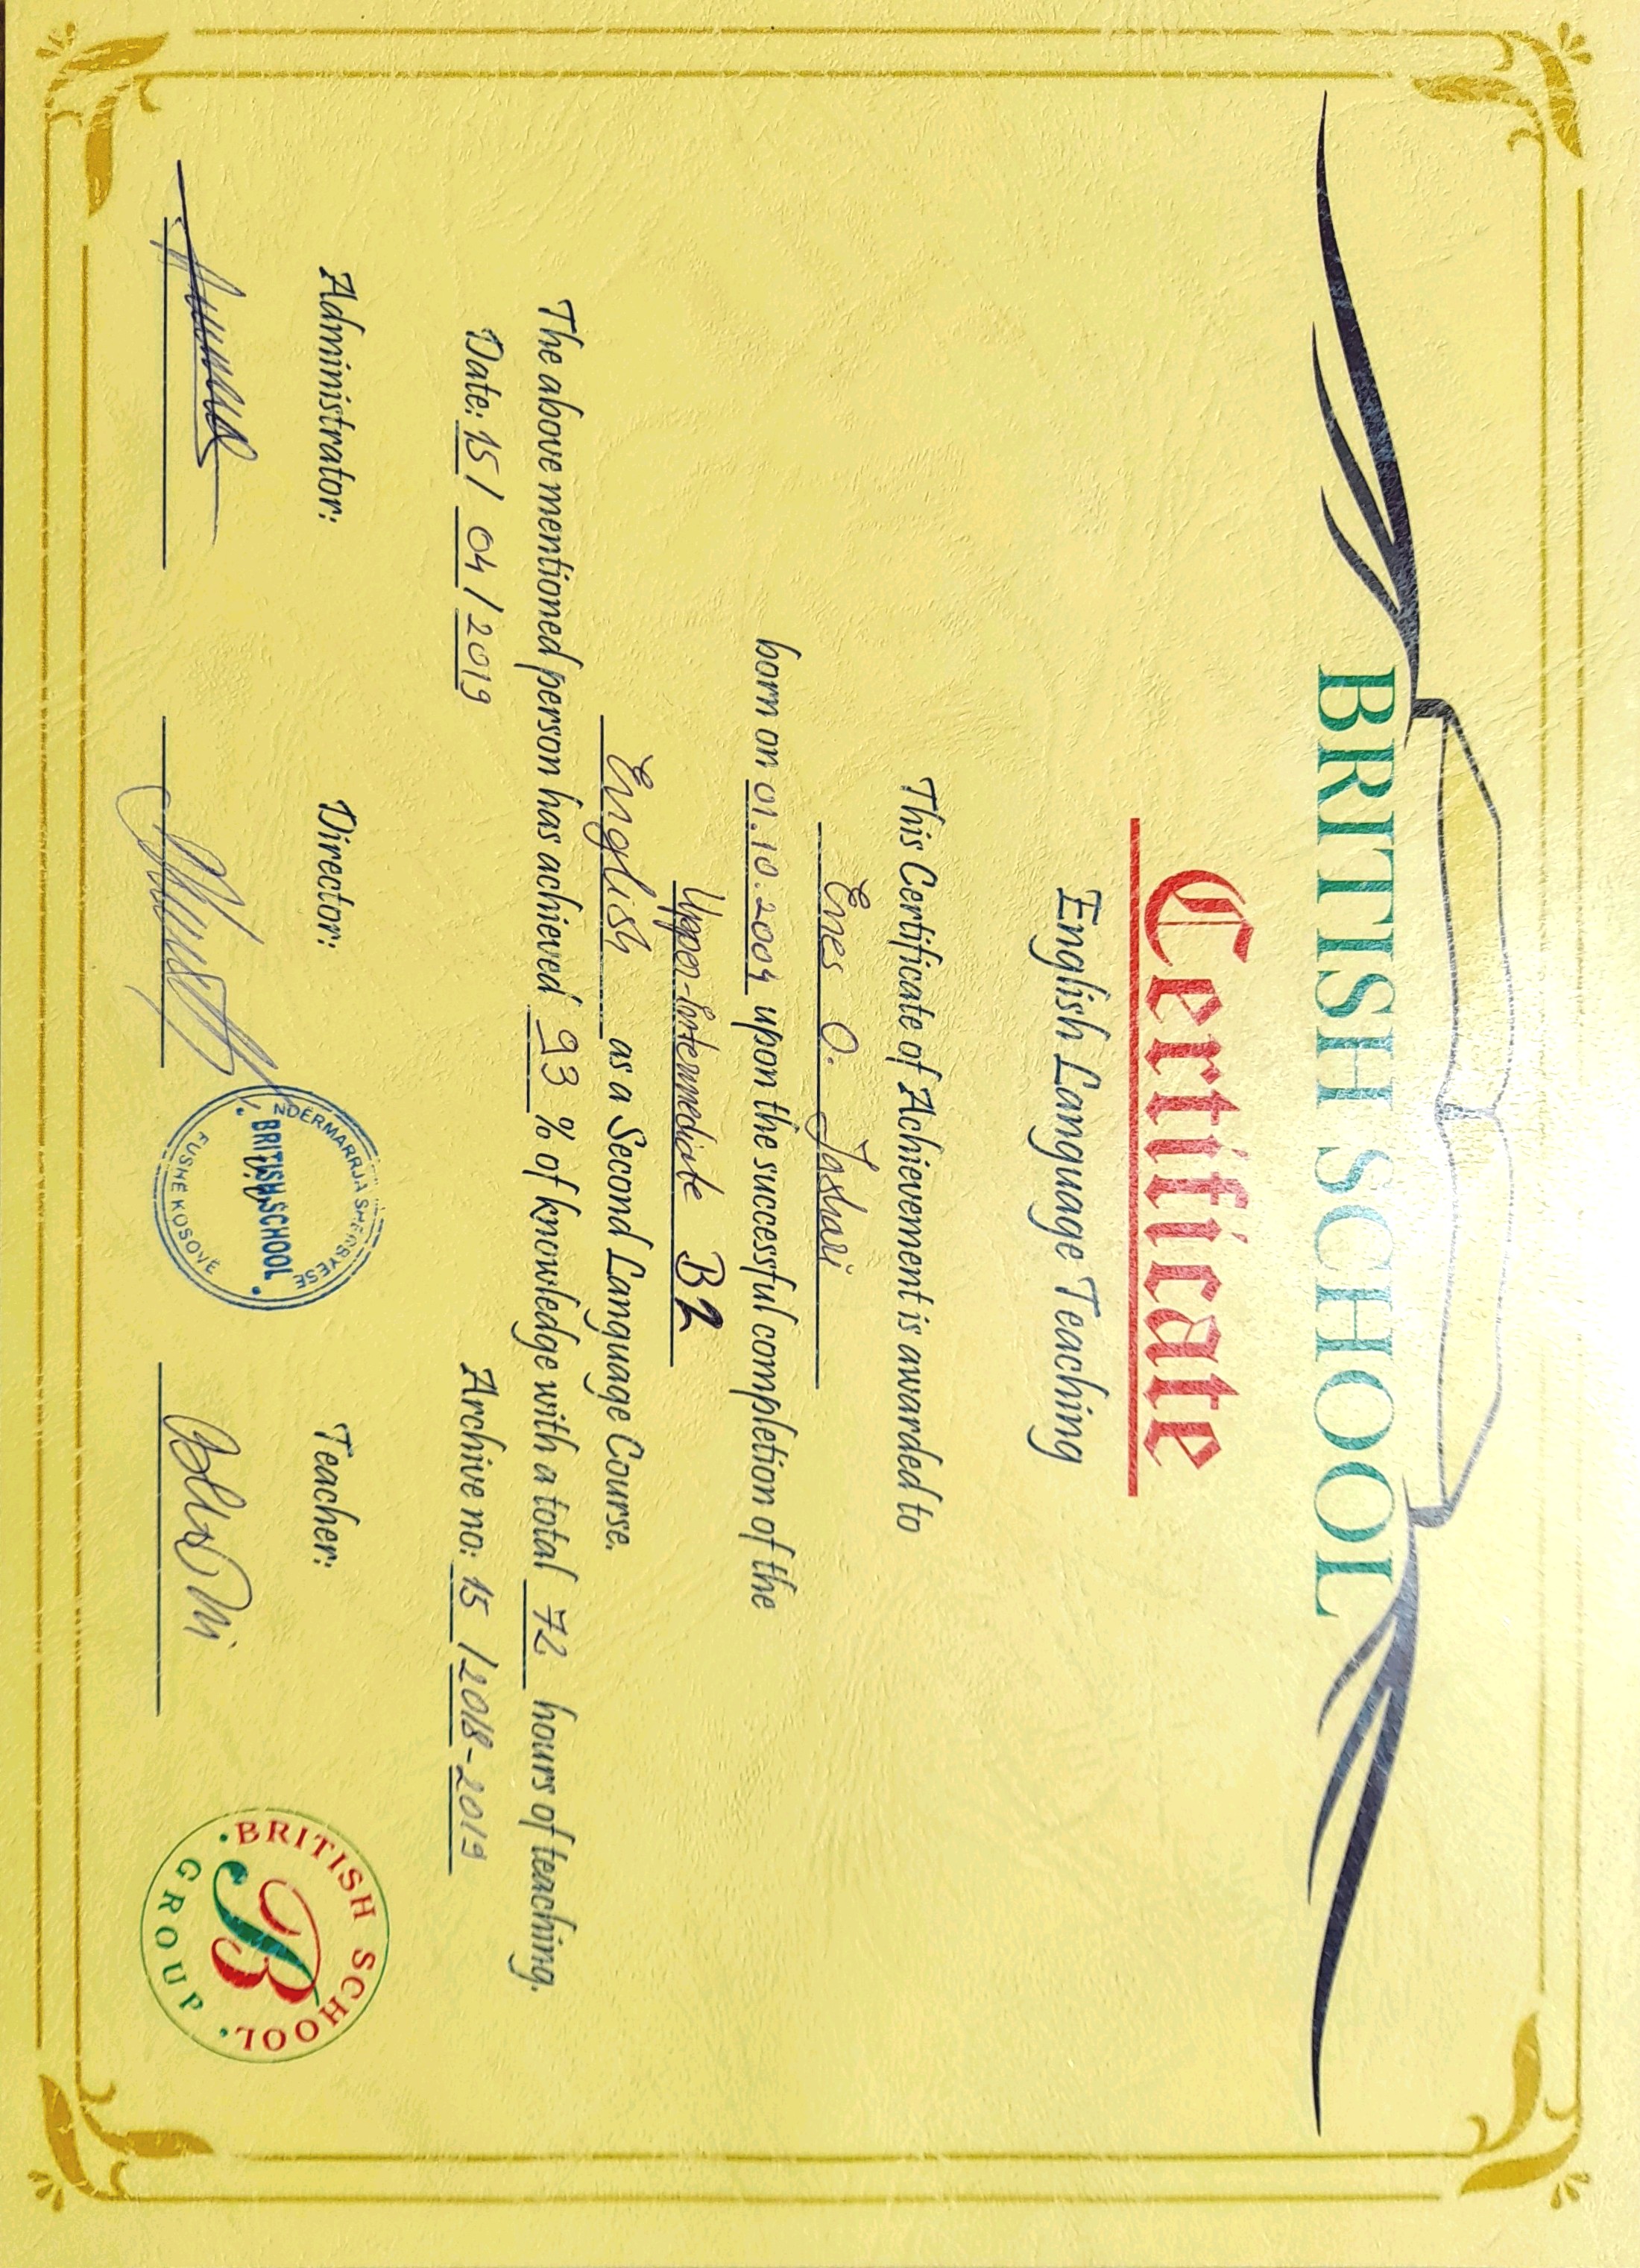 BRITISH SCHOOL
Certificate
English Language Teaching
This Certificate of Achievement is awarded to
Enes O. Jashari
born on 01.10.2004 upon the successful completion of the
Upper-Intermediate B2
English as a Second Language Course.
The above mentioned person has achieved 93 % of knowledge with a total 72 hours of teaching.
Date: 15/ 04/2019 Archive no: 15 /2018-2019
Administrator: Director: Teacher:
NDËRMARRJA SHËRBYESE
BRITISH SCHOOL
FUSHË KOSOVË
BRITISH SCHOOL
B
GROUP